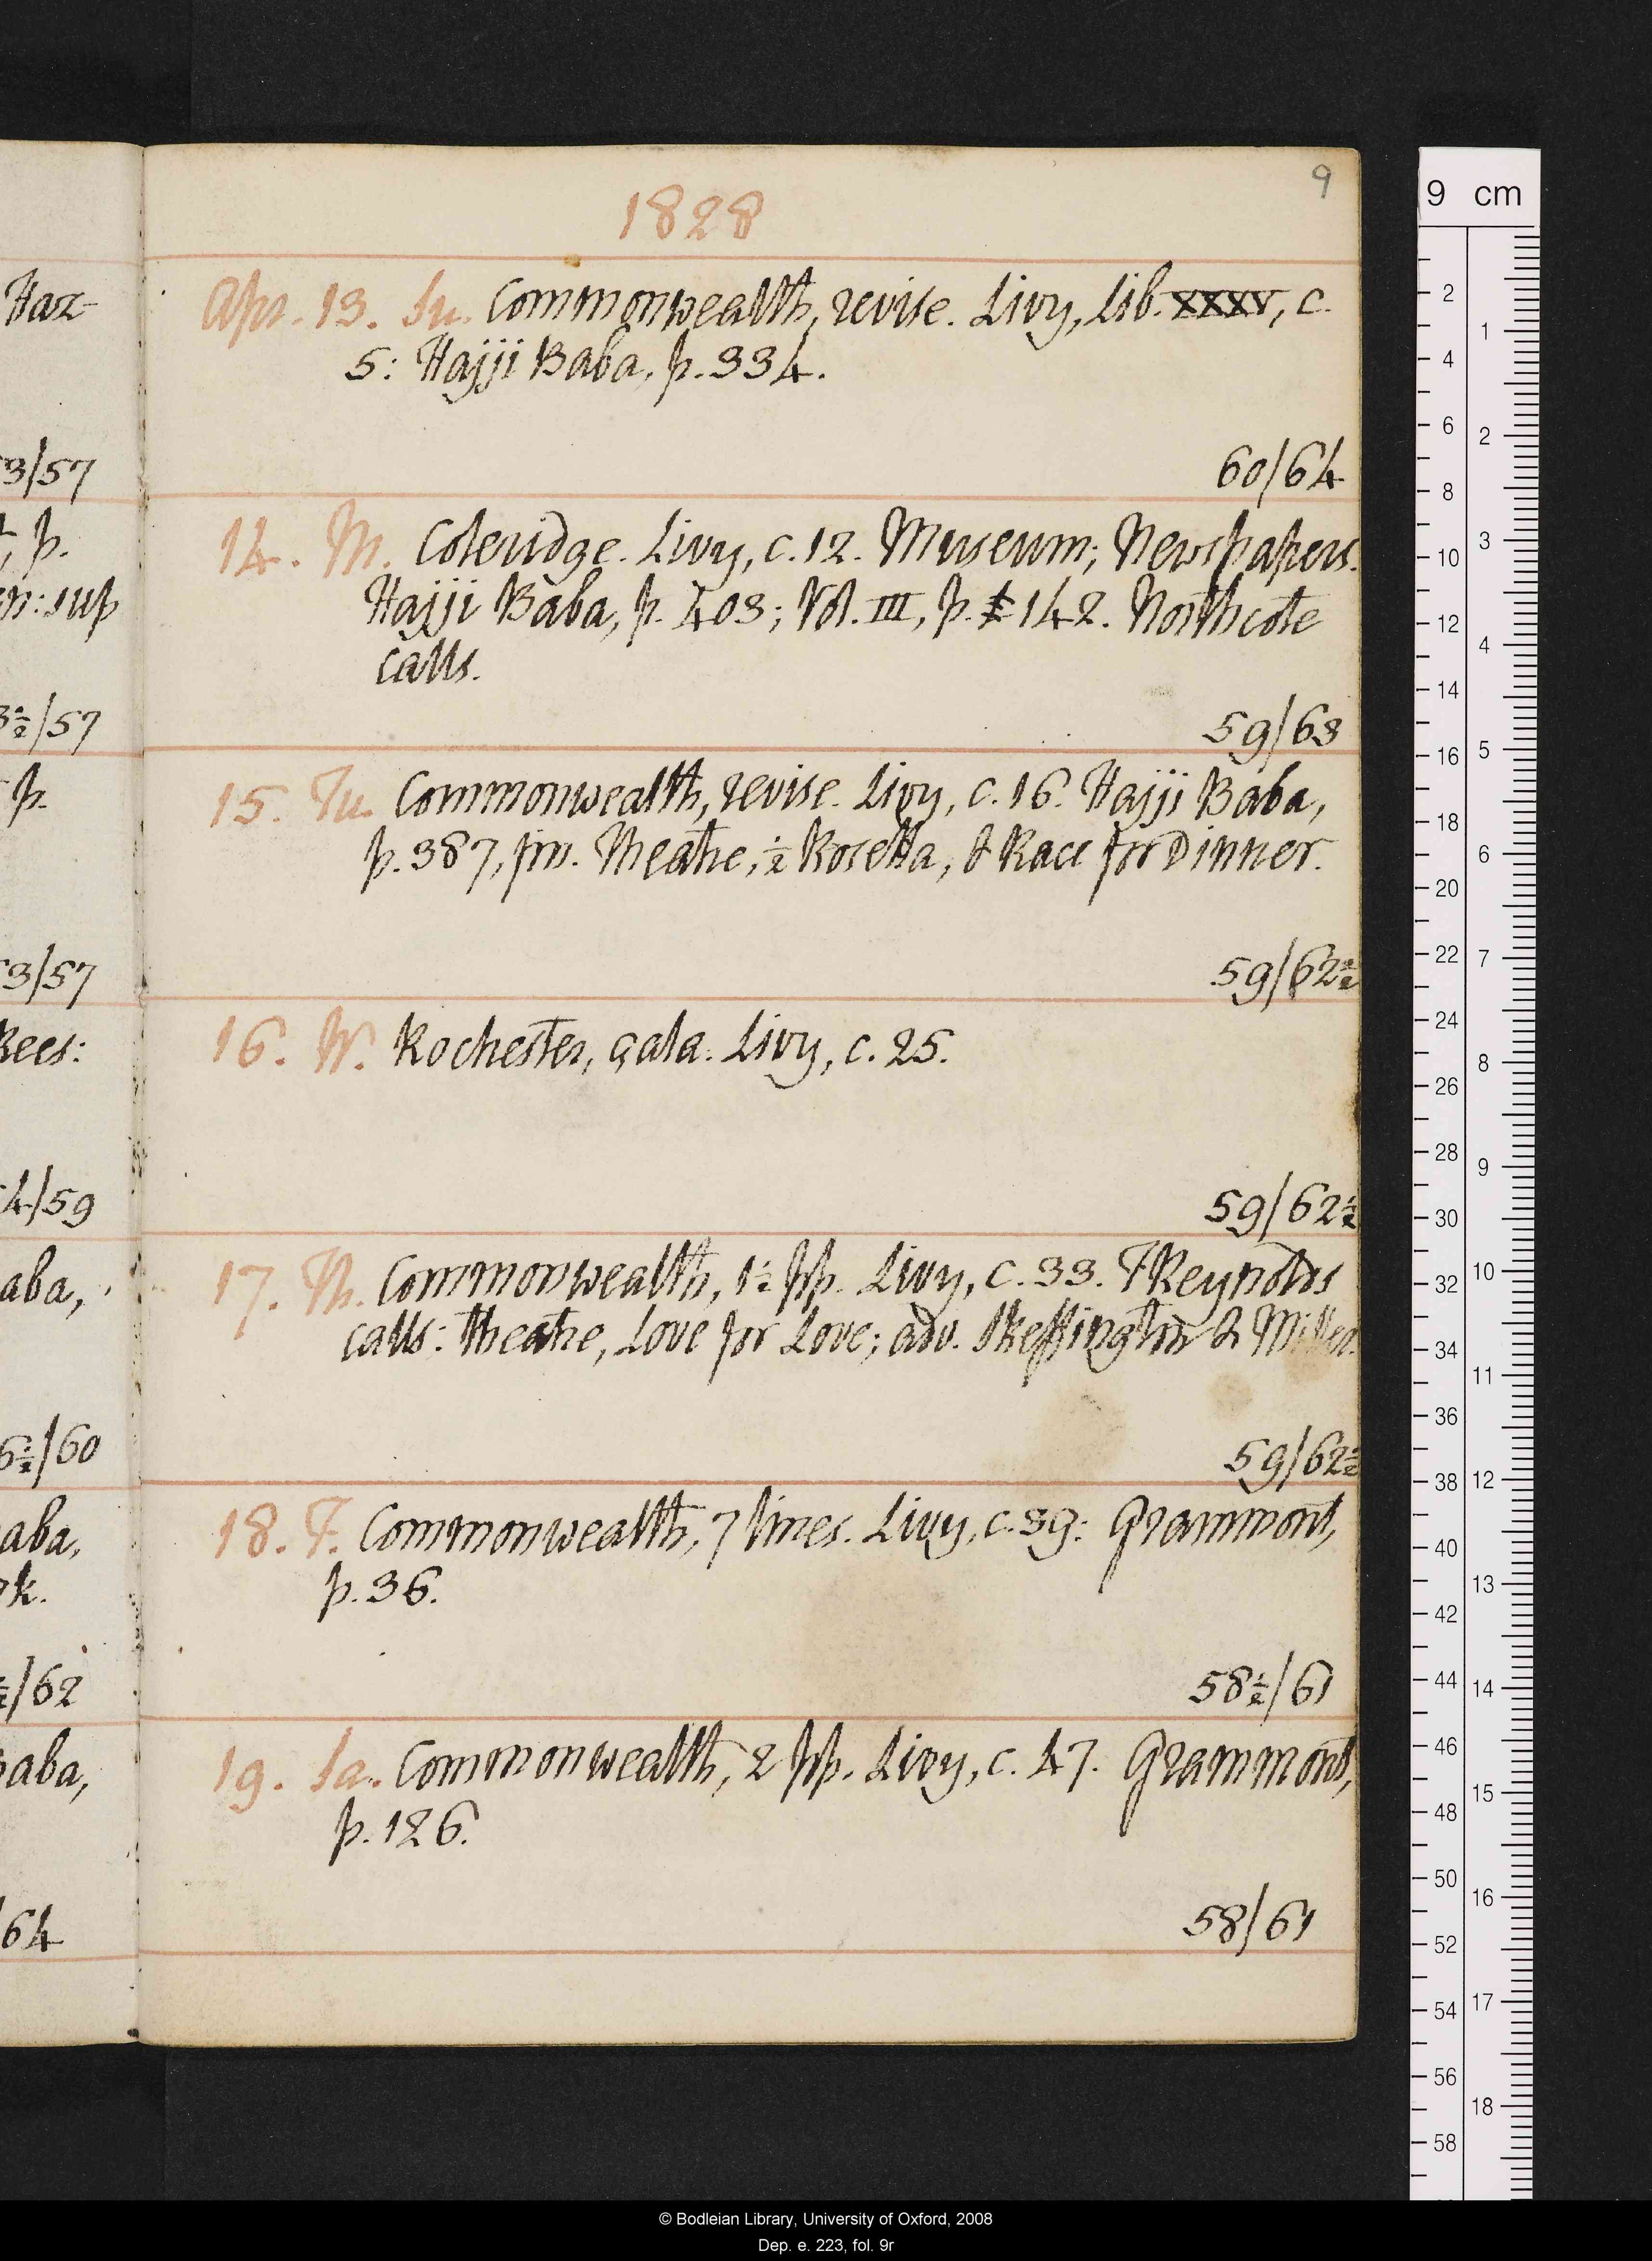 Haz-
3/57
, p.
n: sup
3½/57
p.
3/57
Rees:
4/59
aba,
6½/60
aba,
k.
½/62
aba,
64
9
1828
Apr. 13. Su. Commonwealth, revise. Livy, Lib. XXXV, c.
5: Hajji Baba, p. 334.
60/64
14. M. Coleridge. Livy, c. 12. Museum; Newspapers.
Hajji Baba, p. 403; Vol. III, p. 142. Northcote
calls.
59/63
15. Tu. Commonwealth, revise. Livy, c. 16. Hajji Baba,
p. 387, fin. Theatre, ½ Rosetta, & Race for Dinner.
59/62½
16. W. Rochester, gala. Livy, c. 25.
59/62½
17. Th. Commonwealth, 1½ pp. Livy, c. 33. F Reynolds
calls: theatre, Love for Love; adv. Skeffington & Miller.
59/62½
18. F. Commonwealth, 7 lines. Livy, c. 39: Grammont,
p. 36.
58½/61
19. Sa. Commonwealth, 2 pp. Livy, c. 47. Grammont,
p. 126.
58/61
9 cm
2 4 6 8 10 12 14 16 18 20 22 24 26 28 30 32 34 36 38 40 42 44 46 48 50 52 54 56 58
1 2 3 4 5 6 7 8 9 10 11 12 13 14 15 16 17 18
© Bodleian Library, University of Oxford, 2008
Dep. e. 223, fol. 9r